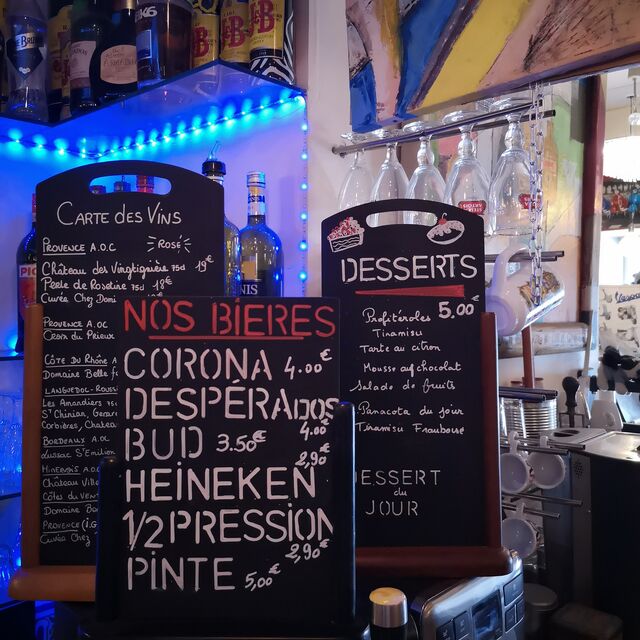 CARTE DES VINS
PROVENCE A.O.C
ROSÉ
Château des Vingtignière 75cl 19€
Perle de Roseline 75cl 18€
Cuvée Chez Domi
PROVENCE A.OC
Croix du Prieur
CÔTE DU RHÔNE A
Domaine Belle
LANGUEDOC-ROUSS
Les Amandiers 75c
S'Chinian, Gerar
Corbières, Chateau
BORDEAUX A.OC
Lussac S'Emilion
MINERVOIS A.OC
Château
Côtes du VENT
Domaine
PROVENCE (I.G
Cuvée Chez
NOS BIERES
CORONA 4.00€
DESPÉRADOS
4.00
BUD 3.50€
2,90€
HEINEKEN
1/2 PRESSION
2,90€
PINTE 5,00€
DESSERTS
5.00€
Profitéroles
Tiramisu
Tarte au citron
Mousse au chocolat
Salade de fruits
Panacota du jour
Tiramisu Framboise
DESSERT
du
JOUR